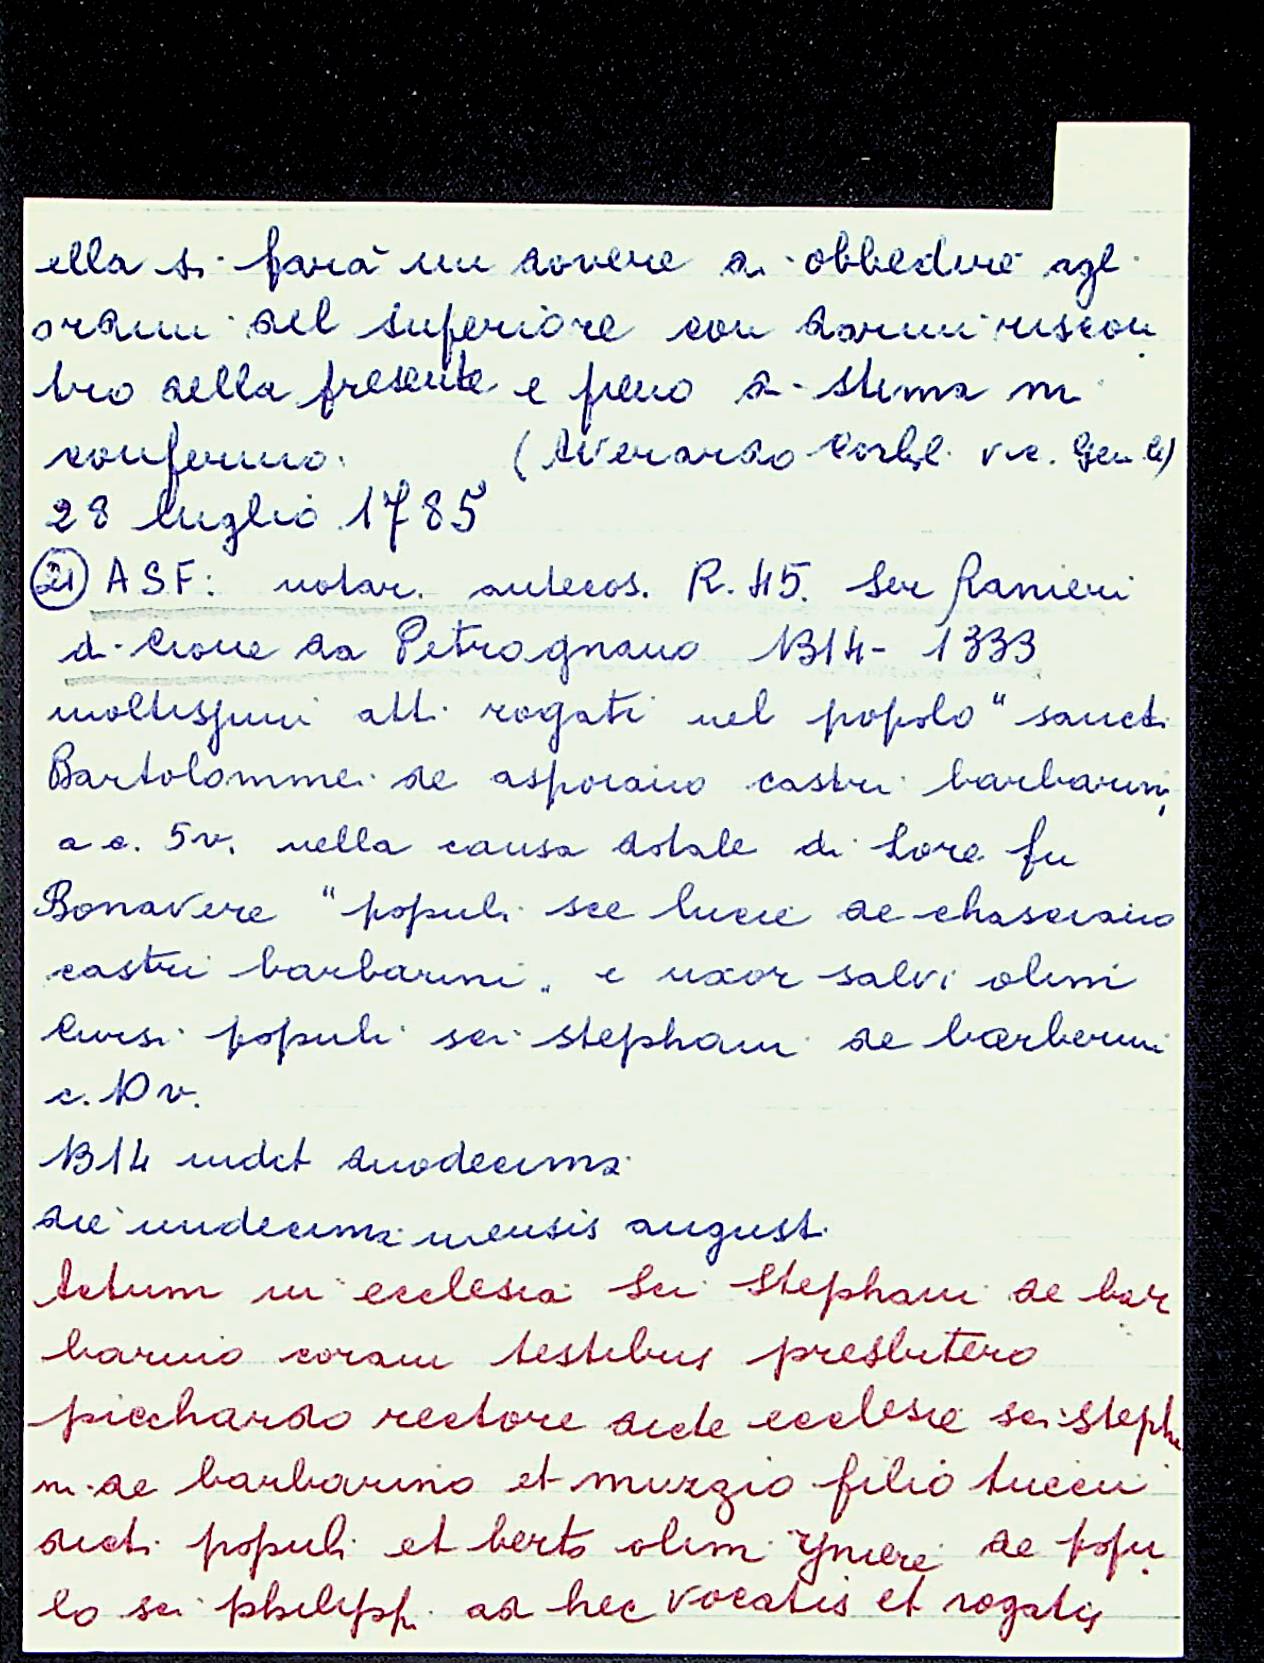 ella si farà un dovere di obbedire agl
ordini del superiore con darmi riscon
tro della presente e pieno di stima mi
confermo. (Averardo vic. Gen.le)
28 luglio 1785
21 ASF: notar. antecos. R.45. Ser Ranieri
di Cione da Petrognano 1314-1333
moltissimi atti rogati nel popolo "sancti
Bartolommei de asporaino castri barbarini,
a c. 5v. nella causa dotale di Lore fu
Bonavere "populi sce lucie de chasciaino
castri barbarini" e uxor salvi olim
Cursi populi sci stephani de barberini
c. 10v.
1314 indct duodecima
die undecima mensis augusti
Actum in ecclesia Sci Stephani de bar
barino coram testibus presbitero
picchardo rectore dicte ecclesie sci steph
ni de barbarino et muzzio filio tuccii
dicti populi et berto olim Yneri de popu
lo sci philippi ad hec vocatis et rogatis